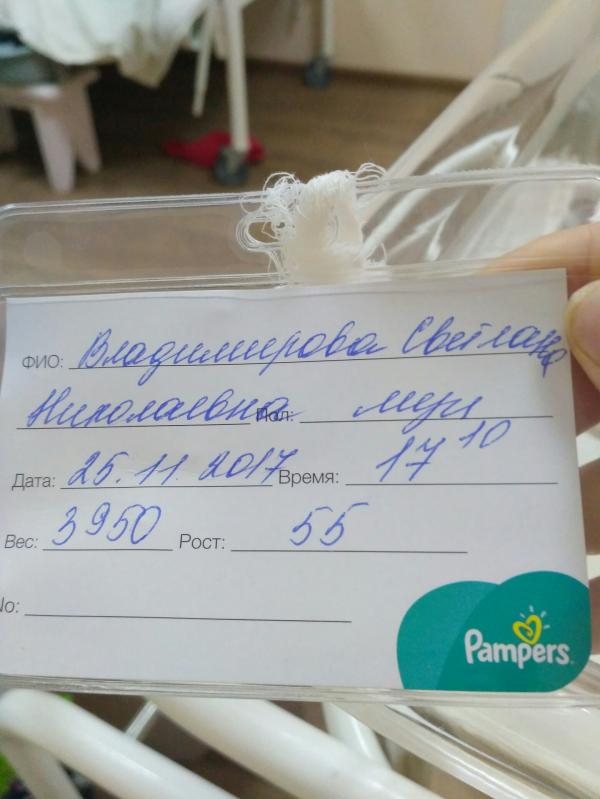 ФИО: Владимирова Светлана
Николаевна Пол: муж
Дата: 25.11.2017 Время: 17 10
Вес: 3950 Рост: 55
No:
Pampers